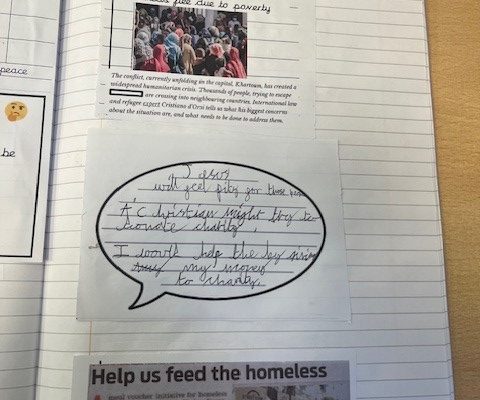 flee due to poverty
The conflict, currently unfolding in the capital, Khartoum, has created a
widespread humanitarian crisis. Thousands of people, trying to escape
are crossing into neighbouring countries. International law
and refugee expert Cristiano d'Orsi tells us what his biggest concerns
about the situation are, and what needs to be done to address them.
peace
be
Jesus
will feel pity for those
A Christian might try to
donate charity,
I would help the by giving
my money
to charity.
Help us feed the homeless
meal voucher initiative for homeless